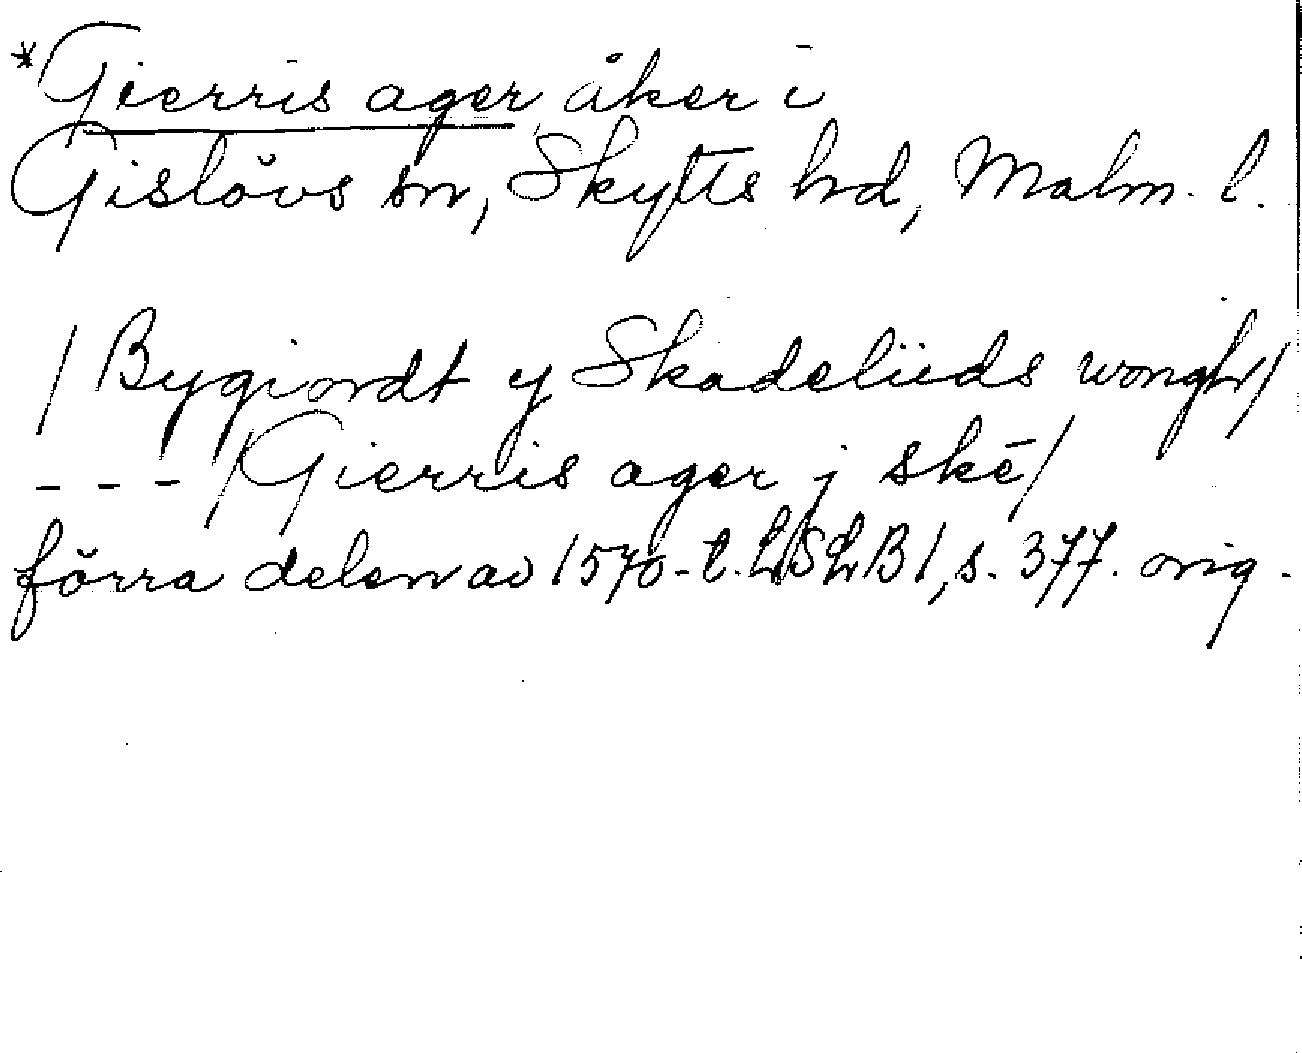 *Gierris ager åker i
Gislövs sn, Skytts hd, Malm. l.
/Bygiordt y Skadelüds wongh/
--- /Gierris ager j skē/
förra delen av 1570-t. LSLB1, s. 377. orig.